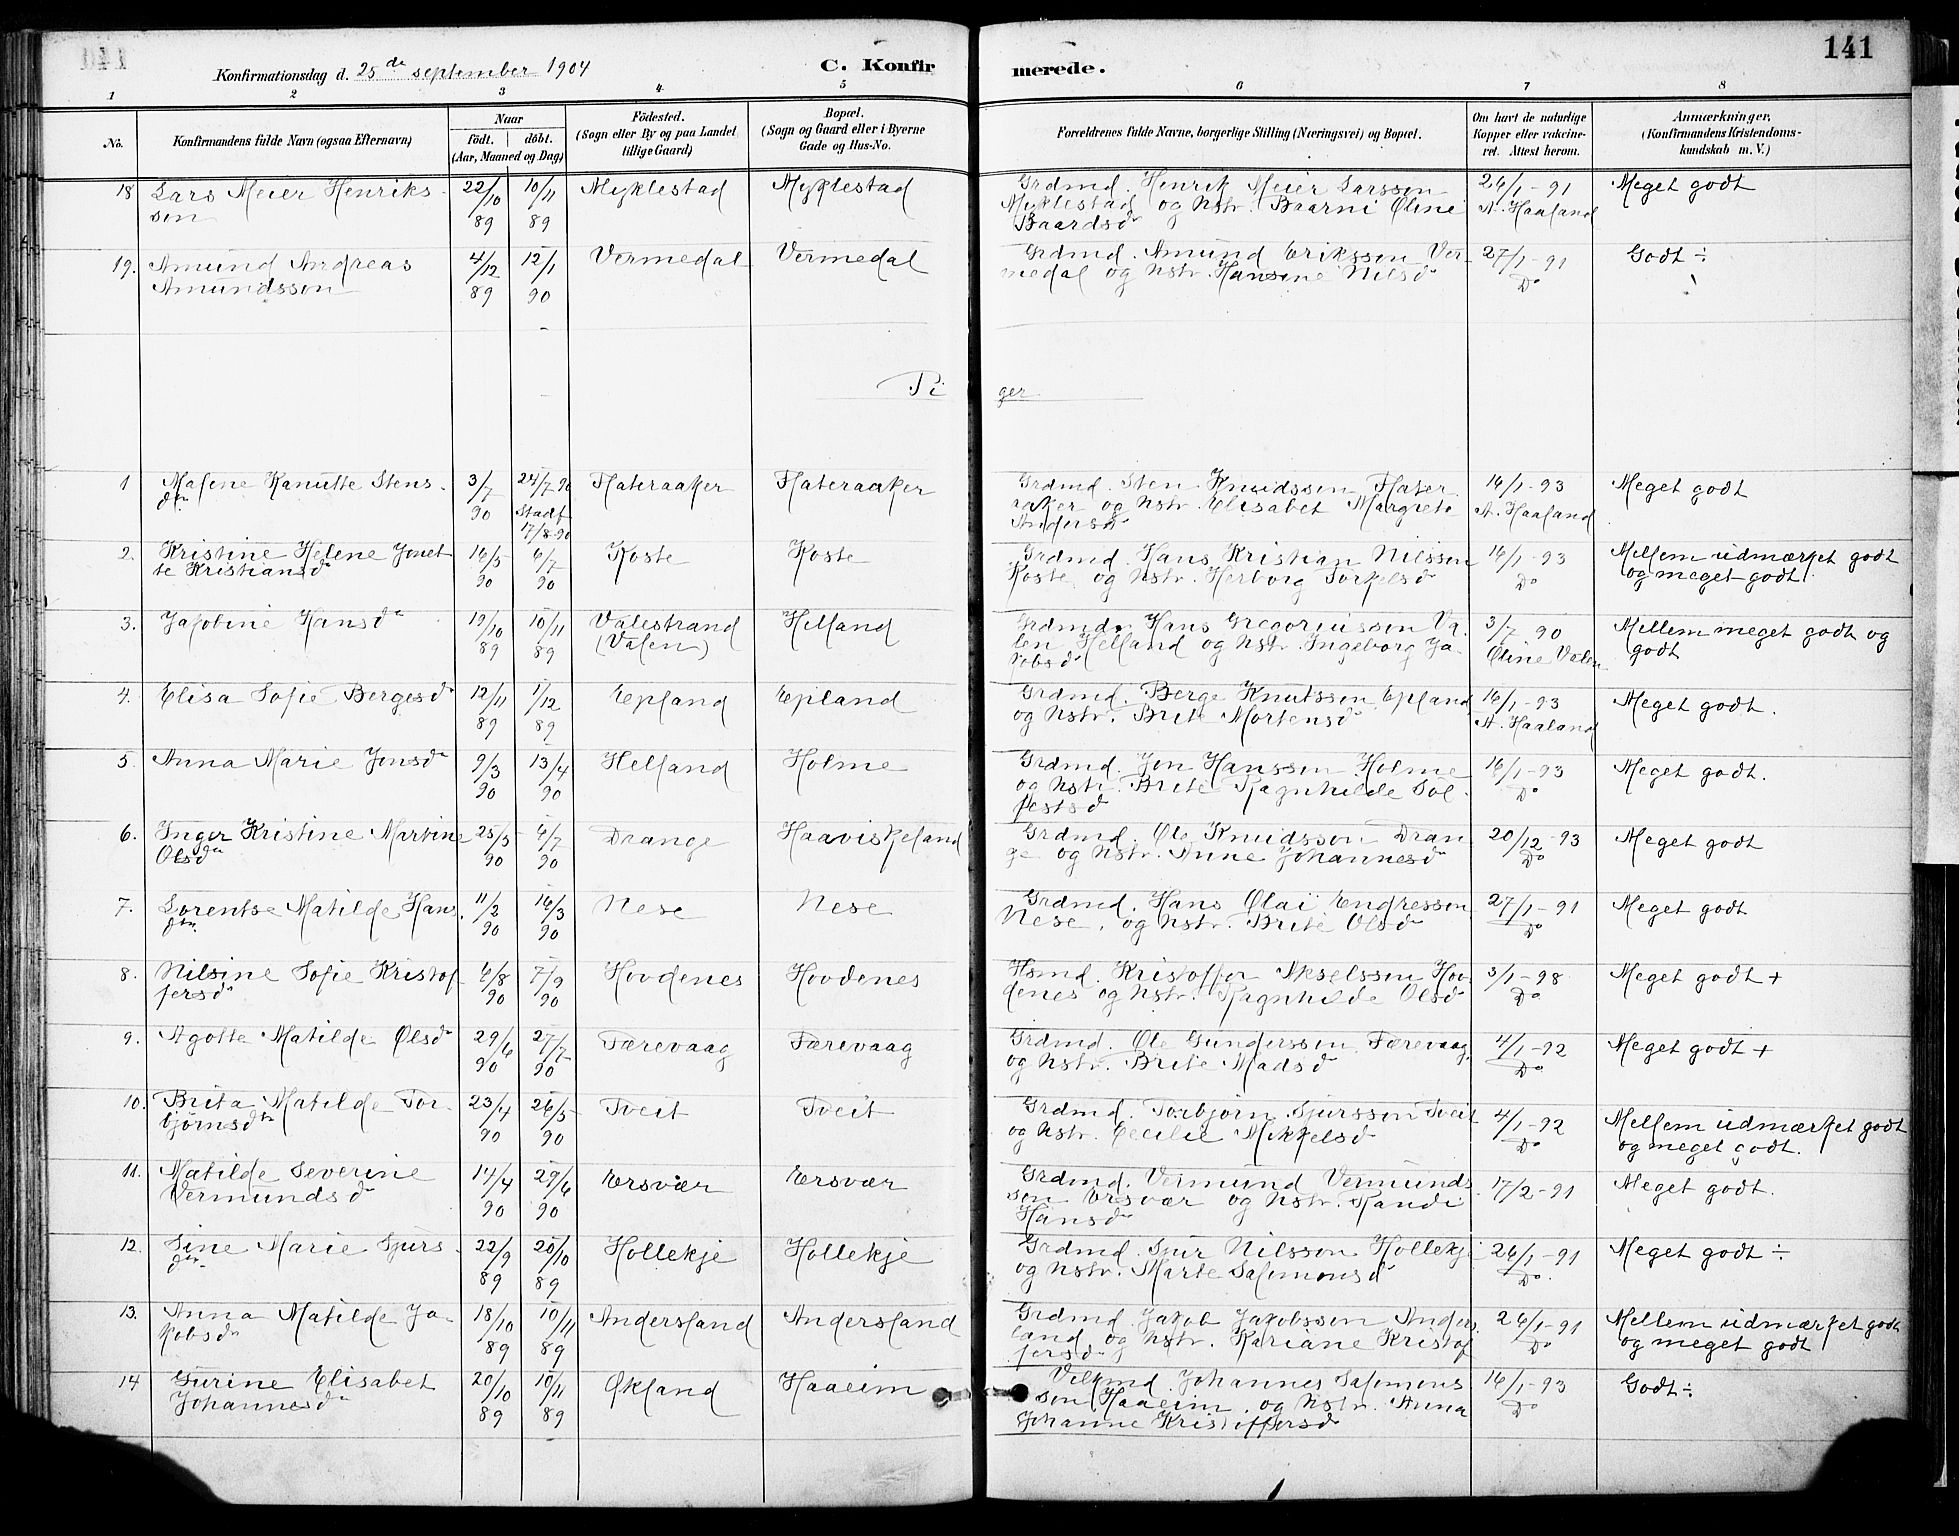 141
Konfirmationsdag d. 25de september 1904
C. Konfirmerede.
1 2 3 4 5 6 7 8
No. Konfirmandens fulde Navn (ogsaa Efternavn) Naar født. døbt. (Aar, Maaned og Dag) Födested. (Sogn eller By og paa Landet tillige Gaard) Bopæl. (Sogn og Gaard eller i Byerne Gade og Hus-No. Forældrenes fulde Navne, borgerlige Stilling (Næringsvei) og Bopæl. Om havt de naturlige Kopper eller vakcineret. Attest herom. Anmærkninger, (Konfirmandens Kristendomskundskab m. V.)
18 Lars Meier Henriksson 22/10 89 10/11 89 Myklestad Myklestad Grdmd. Henrik Meier Larsson Myklestad og Hstr. Baarni Oline Baardsd 26/1-91 A. Haaland Meget godt
19. Amund Andreas Amundsson 4/12 89 12/1 90 Vermedal Vermedal Grdmd. Amund Eriksson Vermedal og Hstr. Hansine Nilsd 27/1-91 Do Godt ÷
Piger
1 Malene Kanutte Stensdtr 3/7 90 24/7 90 Stadf. 17/8-90 Flateraaker Flateraaker Grdmd. Sten Knudsson Flateraaker og Hstr. Elisabet Margrete Andersd 16/1-93 A. Haaland Meget godt
2. Kristine Helene Jonette Kristiansd 16/5 90 6/7 90 Koste Koste Grdmd. Hans Kristian Nilsson Koste og Hstr. Herborg Torkelsd 16/1-93 Do Mellem udmærket godt og meget godt.
3. Jakobine Hansd 19/10 89 10/11 89 Valestrand (Valen) Helland Grdmd. Hans Gregoriusson Valen Helland og Hstr. Ingeborg Jakobsd 3/7 90 Oline Valen Mellem meget godt og godt
4. Elisa Sofie Bergesd 12/11 89 1/12 89 Epland Epland Grdmd. Berge Knutsson Epland og Hstr. Brite Mortensd 16/1-93 A. Haaland Meget godt.
5. Anna Marie Jonsd 9/3 90 13/4 90 Helland Holme Grdmd. Jon Hansson Holme og Hstr. Brite Ragnhilde Solfestsd 16/1-93 Do Meget godt.
6. Inger Kristine Martine Olsd 25/5 90 6/7 90 Drange Haaviskeland Grdmd. Ole Knudsson Drange og Hstr. Anne Johannesd 20/12-93 Do Meget godt
7. Lorentse Matilde Hansdtr. 11/2 90 16/3 90 Nese Nese Grdmd. Hans Olai Endresson Nese, og Hstr. Brite Olsd 27/1-91 Do Meget godt
8. Nilsine Sofie Kristoffersd 6/8 90 7/9 90 Hovdenes Hovdenes Hsmd. Kristoffer Akselsson Hovdenes og Hstr. Ragnhilde Olsd 3/1-98 Do Meget godt +
9. Agotte Matilde Olsd 29/6 90 27/7 90 Færevaag Færevaag Grdmd. Ole Gunderssen Færevaag og Hstr. Brite Madsd 4/1-92 Do Meget godt +
10. Brita Matilde Torbjørnsdtr 23/4 90 26/5 90 Tveit Tveit Grdmd. Torbjørn Sjursson Tveit og Hstr. Cecilie Mikkelsd 4/1-92 Do Mellem udmærket godt og meget godt.
11. Matilde Severine Vermundsd 14/4 90 29/6 90 Ersvær Ersvær Grdmd. Vermund Vermundsson Ersvær og Hstr. Randi Hansd 17/2-91 Meget godt.
12. Sine Marie Sjursdtr. 22/9 89 20/10 89 Hollekje Hollekje Grdmd. Sjur Nilsson Hollekje og Hstr. Marte Salomonsd 26/1-91 Do. Meget godt ÷
13. Anna Matilde Jakobsd 18/10 89 10/11 89 Andersland Andersland Grdmd. Jakob Jakobsson Andersland og Hstr. Kariane Kristoffersd 26/1-91 Do Mellem udmærket godt og meget godt
14 Gurine Elisabet Johannesd 20/10 89 10/11 89 Økland Haaeim Johannes Salomonsson Haaeim, og Hstr. Anna Johanne Kristoffersd 16/1-93 Do Godt ÷